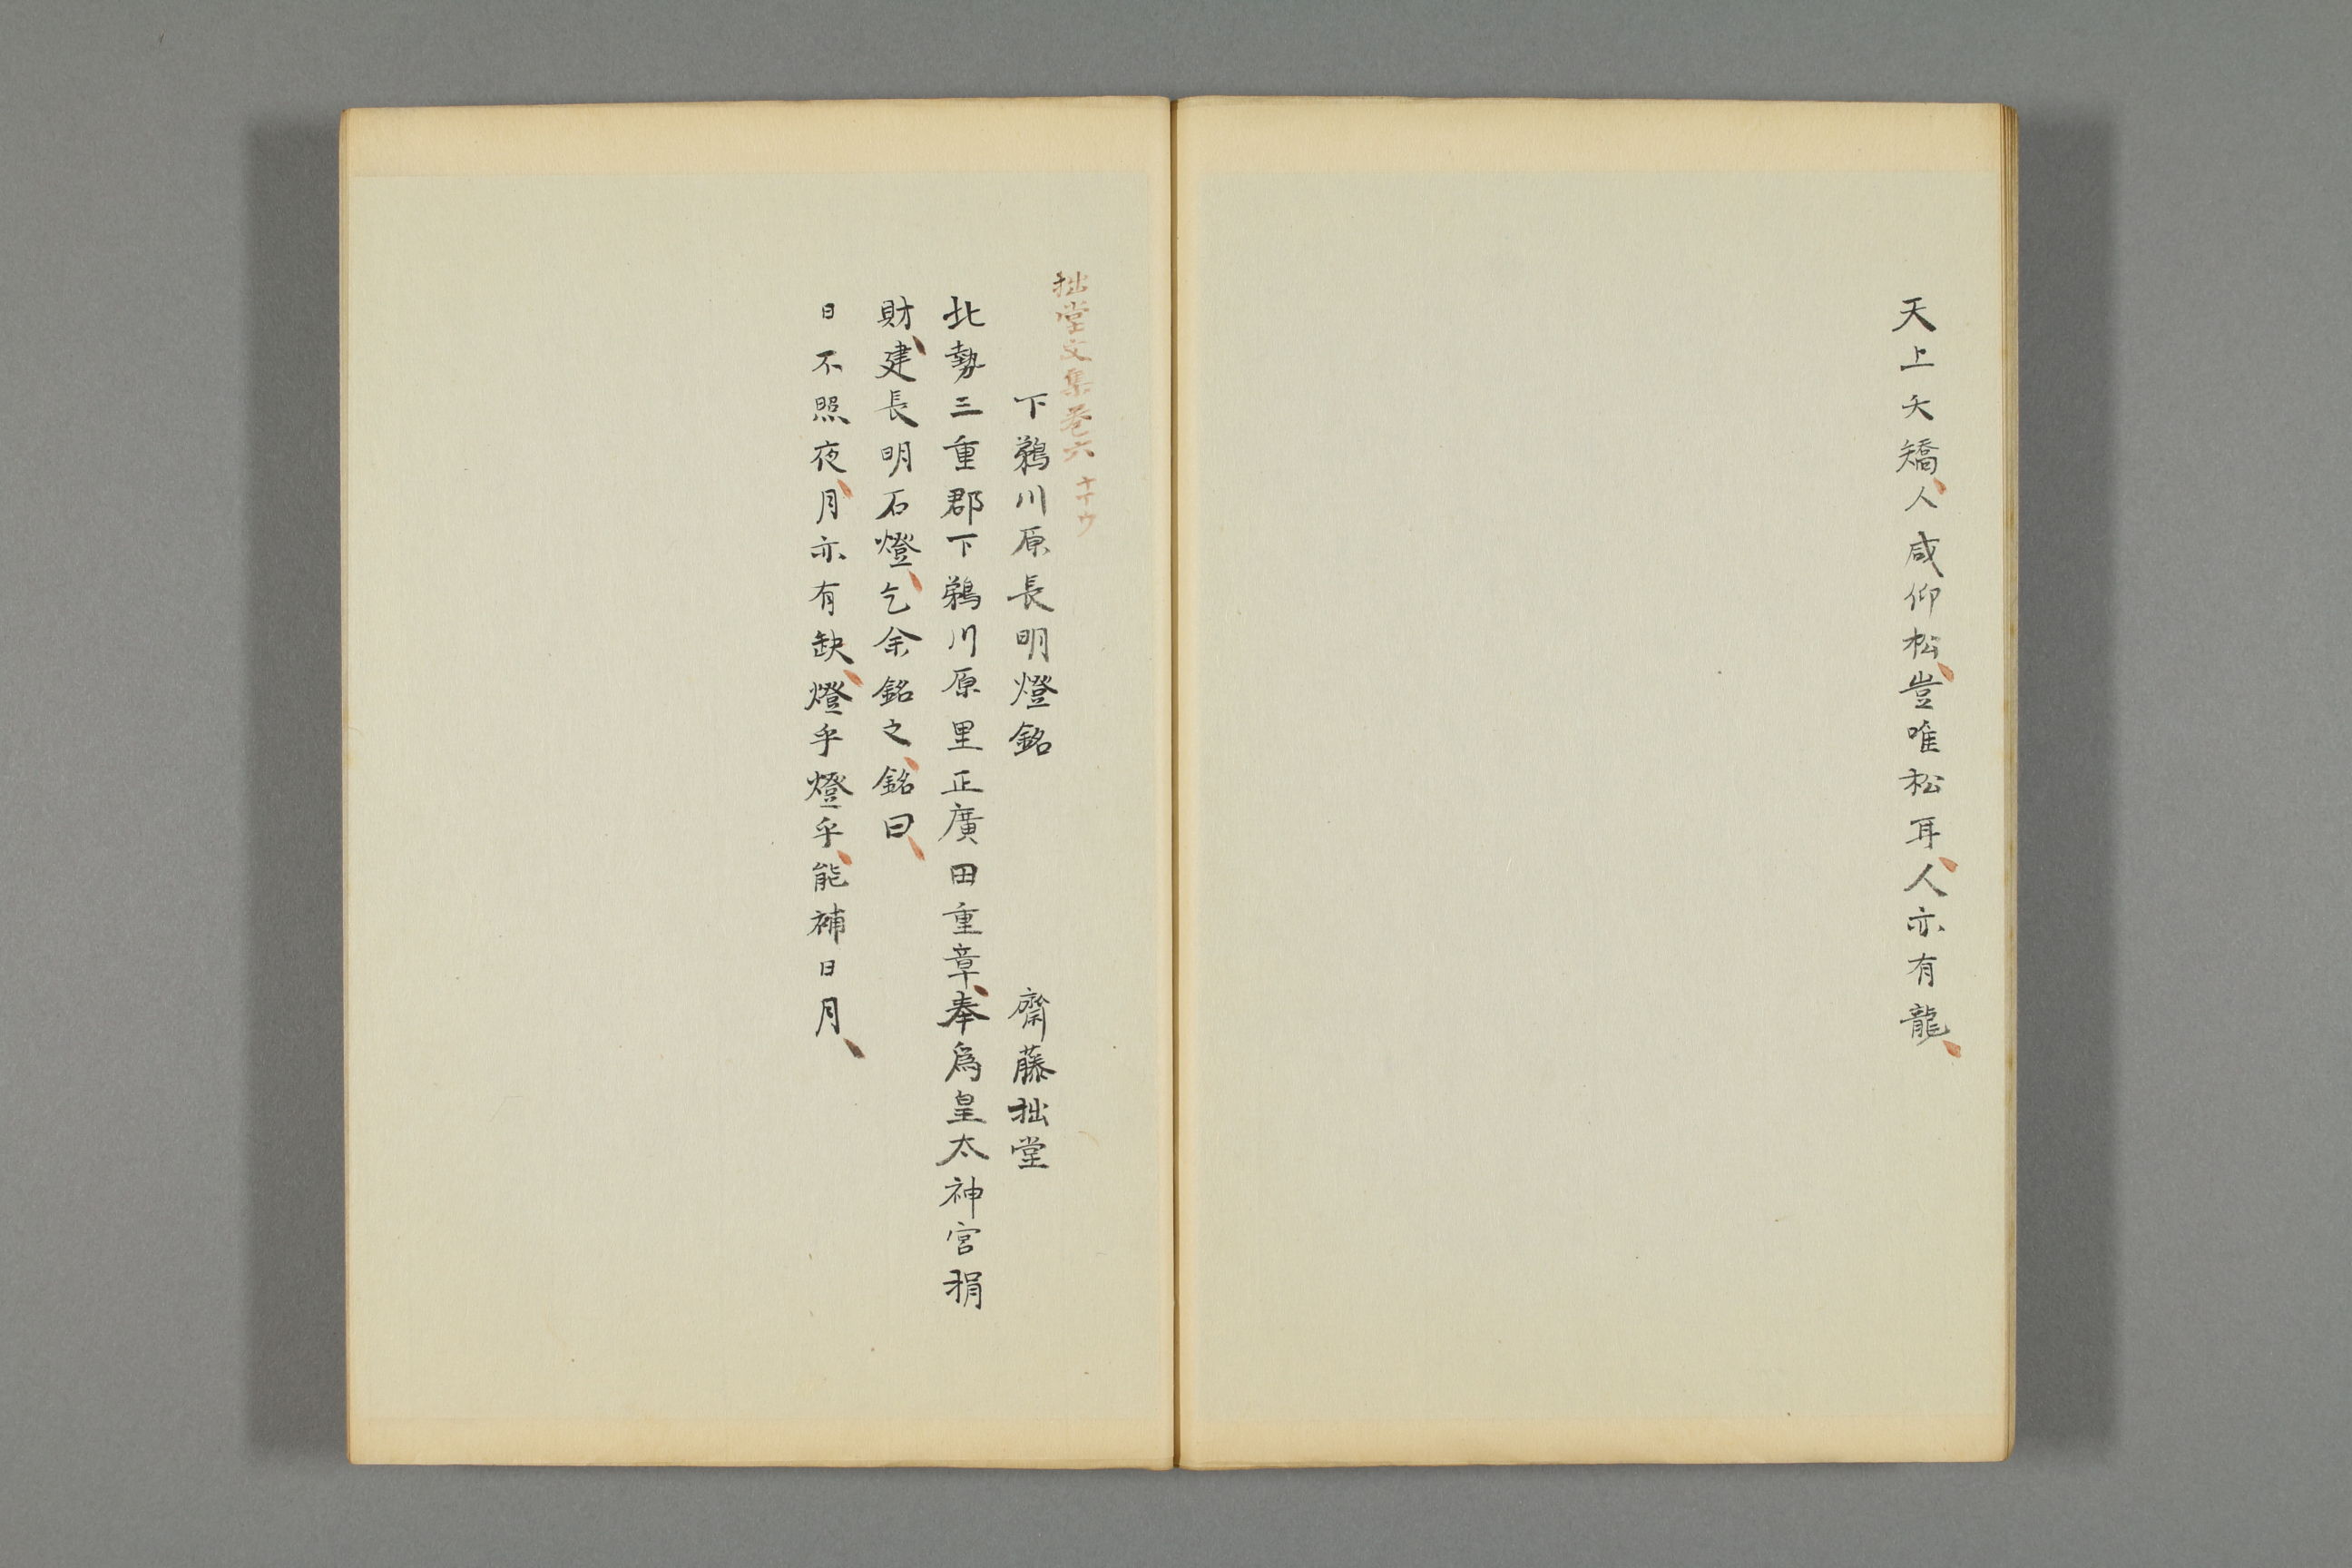 天上夭矯、人咸仰松、豈唯松耳、人亦有龍、
拙堂文集卷六 十丁ウ
下鵜川原長明燈銘 齋藤拙堂
北勢三重郡下鵜川原里正廣田重章、奉爲皇太神宮捐
財、建長明石燈、乞余銘之、銘曰、
日不照夜、月亦有缺、燈乎燈乎、能補日月、